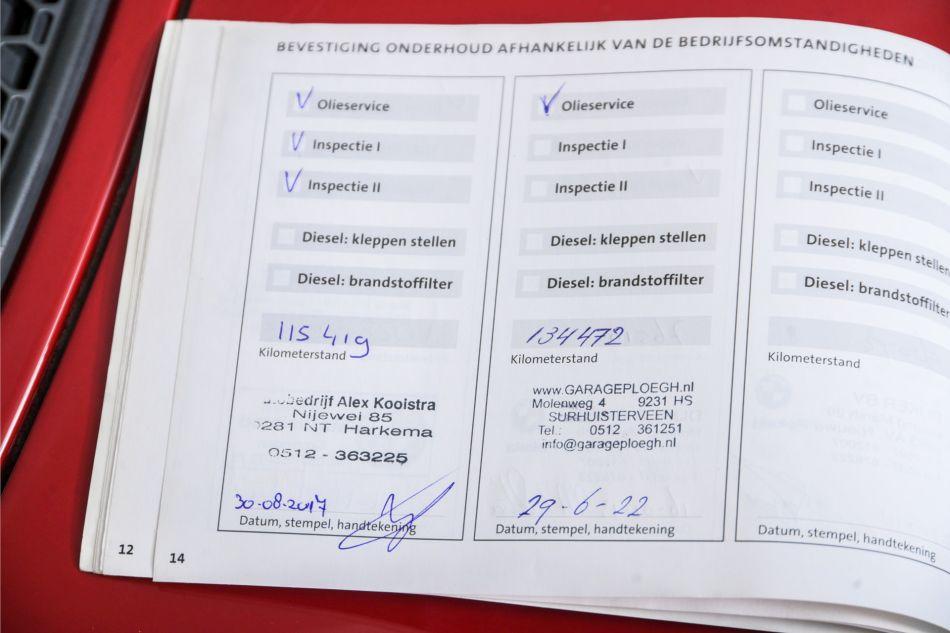 BEVESTIGING ONDERHOUD AFHANKELIJK VAN DE BEDRIJFSOMSTANDIGHEDEN
Olieservice
Inspectie I
Inspectie II
Diesel: kleppen stellen
Diesel: brandstoffilter
115 419
Kilometerstand
Alex Kooistra
Nijewei 85
9281 NT Harkema
0512 - 363225
30-08-2017
Datum, stempel, handtekening
Olieservice
Inspectie I
Inspectie II
Diesel: kleppen stellen
Diesel: brandstoffilter
134472
Kilometerstand
www.GARAGEPLOEGH.nl
Molenweg 4 9231 HS
SURHUISTERVEEN
Tel.: 0512 361251
info@garageploegh.nl
29-6-22
Datum, stempel, handtekening
Olieservice
Inspectie I
Inspectie II
Diesel: kleppen stellen
Diesel: brandstoffilter
Kilometerstand
Datum, stempel, handtekening
12
14